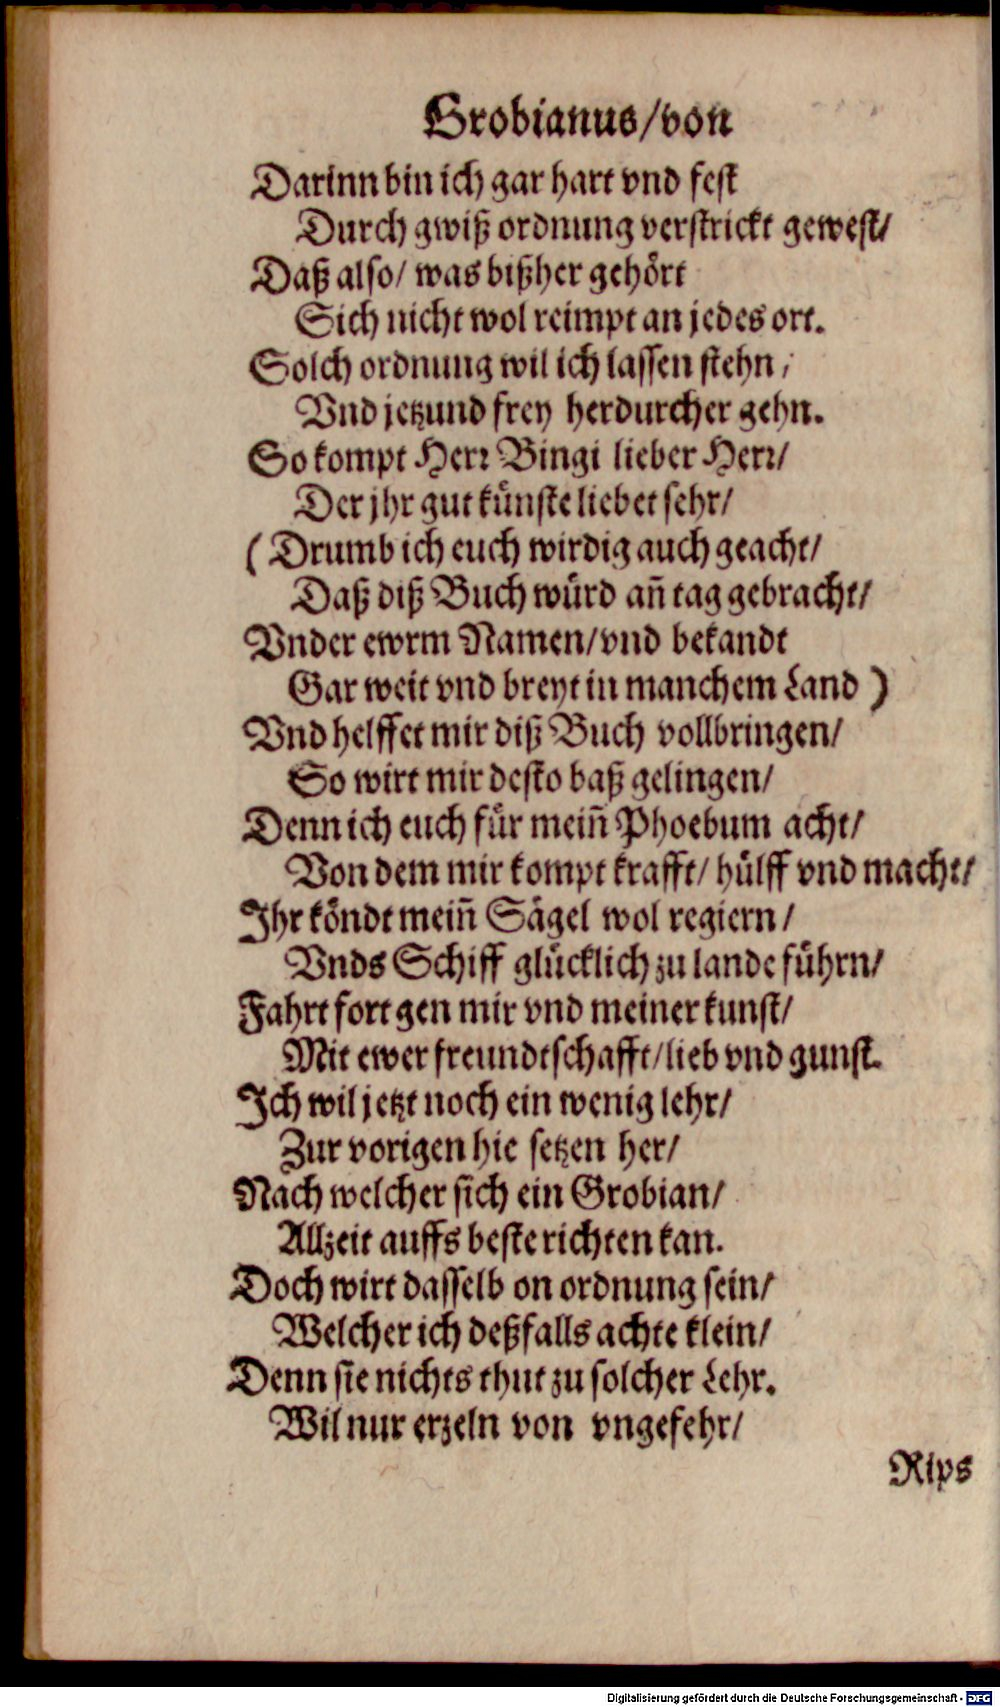 Grobianus/von
Darinn bin ich gar hart vnd fest
Durch gwiß ordnung verstrickt gewest/
Daß also/ was bißher gehört
Sich nicht wol reimpt an jedes ort.
Solch ordnung wil ich lassen stehn,
Vnd jetzund frey herdurcher gehn.
So kompt Herr Bingi lieber Herr/
Der jhr gut künste liebet sehr/
(Drumb ich euch wirdig auch geacht/
Daß diß Buch würd an̄ tag gebracht/
Vnder ewrm Namen/vnd bekandt
Gar weit vnd breyt in manchem Land)
Vnd helffet mir diß Buch vollbringen/
So wirt mir desto baß gelingen/
Denn ich euch für mein̄ Phoebum acht/
Von dem mir kompt krafft/ hülff vnd macht/
Ihr köndt mein̄ Sägel wol regiern/
Vnds Schiff glücklich zu lande führn/
Fahrt fort gen mir vnd meiner kunst/
Mit ewer freundtschafft/lieb vnd gunst.
Ich wil jetzt noch ein wenig lehr/
Zur vorigen hie setzen her/
Nach welcher sich ein Grobian/
Allzeit auffs beste richten kan.
Doch wirt dasselb on ordnung sein/
Welcher ich deßfalls achte klein/
Denn sie nichts thut zu solcher Lehr.
Wil nur erzeln von vngefehr/
Rips
Digitalisierung gefördert durch die Deutsche Forschungsgemeinschaft - DFG